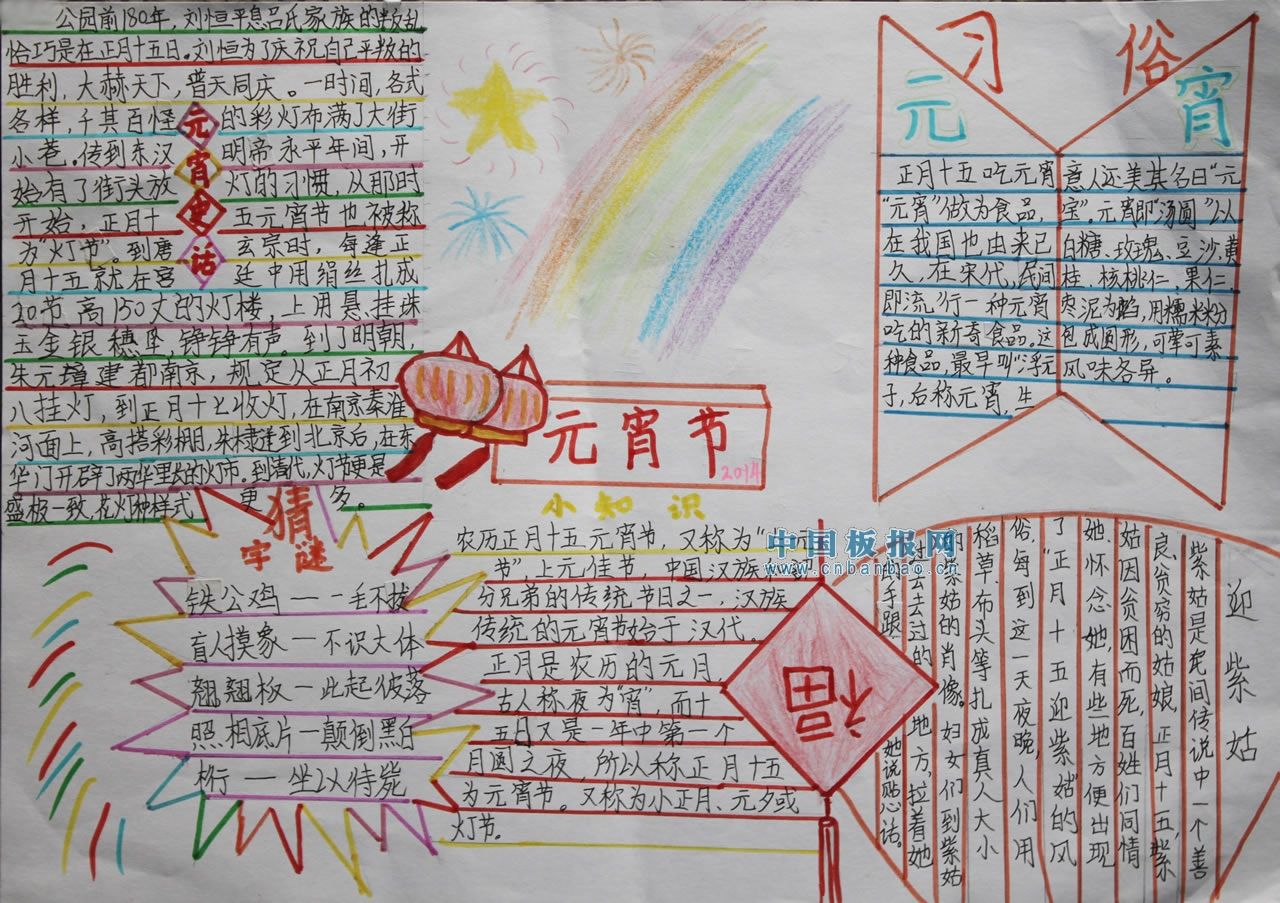 公园前180年,刘恒平息吕氏家族的判乱
恰巧是在正月十五日。刘恒为了庆祝自己平判的
胜利，大赫天下，普天同庆。一时间,各式
各样，千其百怪的彩灯布满了大街
小巷。传到东汉明帝永平年间,开
始有了街头放灯的习惯,从那时
开始，正月十五元宵节也被称
为“灯节”。到唐玄宗时，每逢正
月十五就在宫廷中用绢丝扎成
20节高150丈的灯楼，上用悬挂珠
玉金银穗坠,铮铮有声。到了明朝,
朱元璋建都南京，规定从正月初
八挂灯，到正月十七收灯,在南京秦淮
河面上,高搭彩棚,朱棣迁到北京后,在东
华门开辟了两华里长的灯市。到清代,灯节更是
盛极一致,花灯种样式更多。
元宵史话
元宵节
2014
习俗
元宵
正月十五吃元宵
“元宵”做为食品,
在我国也由来已
久,在宋代,民间
即流行一种元宵
吃的新奇食品。这
种食品,最早叫“浮元
子,后称元宵,生
意人还美其名曰“元
宝”。元宵即“汤圆”以
白糖、玫瑰、豆沙,黄
桂、核桃仁、果仁、
枣泥为馅,用糯米粉
包成圆形,可荤可素
风味各异。
猜
字谜
铁公鸡——一毛不拔
盲人摸象—不识大体
翘翘板—此起彼落
照相底片—颠倒黑白
桥—坐以待毙
小知识
农历正月十五元宵节，又称为“
节”,上元佳节，中国汉族
分兄弟的传统节日之一,汉族
传统的元宵节始于汉代。
正月是农历的元月,
古人称夜为“宵”,而十
五日又是一年中第一个
月圆之夜，所以称正月十五
为元宵节。又称为小正月、元夕或
灯节。
福
迎紫姑
紫姑是民间传说中一个善
良、贫穷的姑娘,正月十五,紫
姑因贫困而死,百姓们同情
她、怀念她,有些地方便出现
了“正月十五迎紫姑”的风
俗,每到这一天夜晚,人们用
稻草、布头等扎成真人大小
的紫姑的肖像。妇女们到紫姑
过去去过的地方,拉着她
手跟她说贴心话。
中国板报网
www.cnbanbao.cn